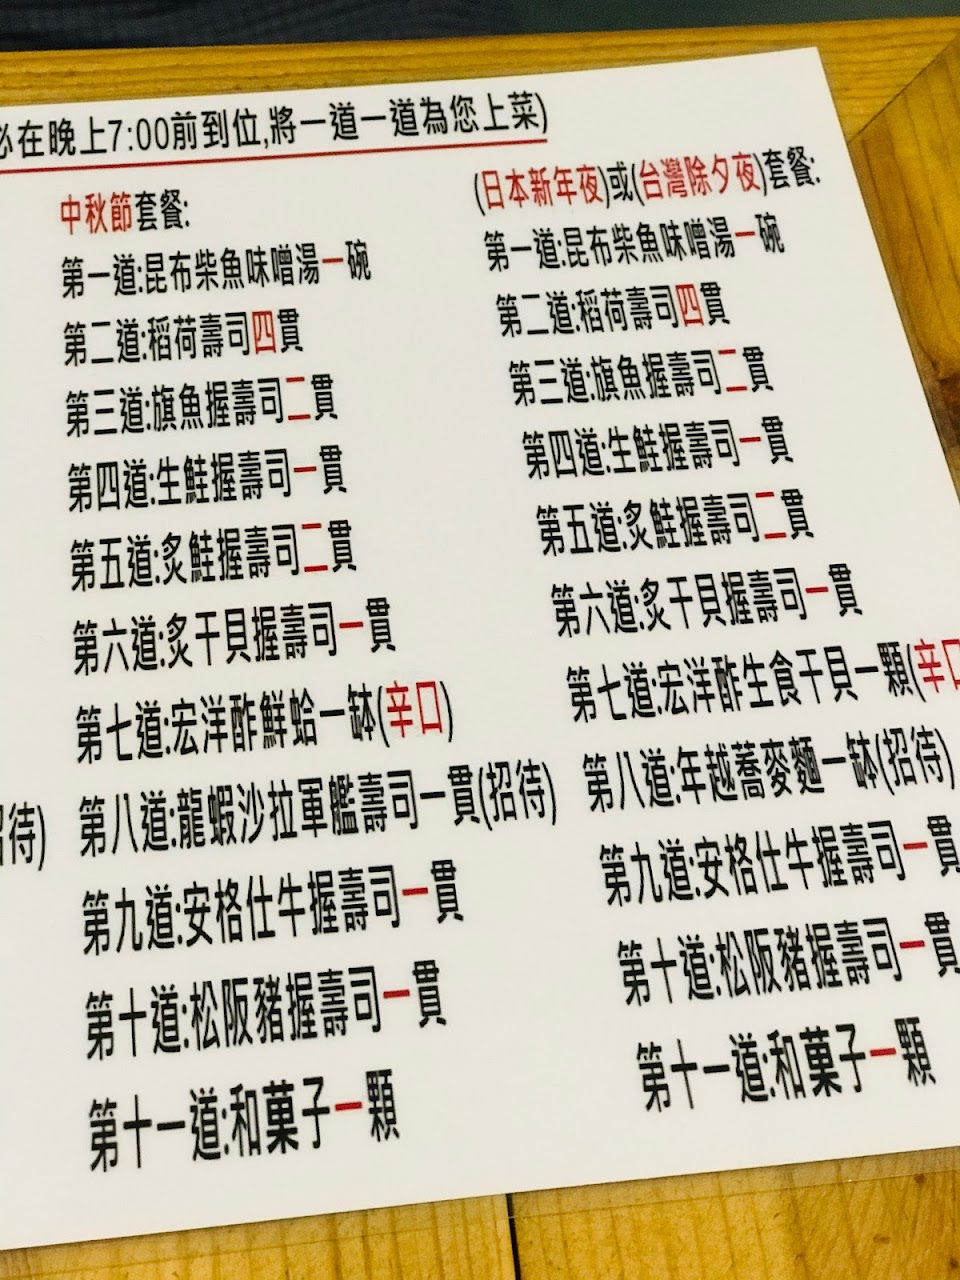 必在晚上7:00前到位,將一道一道為您上菜)
中秋節套餐:
第一道:昆布柴魚味噌湯一碗
第二道:稻荷壽司四貫
第三道:旗魚握壽司二貫
第四道:生鮭握壽司一貫
第五道:炙鮭握壽司二貫
第六道:炙干貝握壽司一貫
第七道:宏洋酢鮮蛤一缽(辛口)
第八道:龍蝦沙拉軍艦壽司一貫(招待)
第九道:安格仕牛握壽司一貫
第十道:松阪豬握壽司一貫
第十一道:和菓子一顆
(日本新年夜)或(台灣除夕夜)套餐:
第一道:昆布柴魚味噌湯一碗
第二道:稻荷壽司四貫
第三道:旗魚握壽司二貫
第四道:生鮭握壽司一貫
第五道:炙鮭握壽司二貫
第六道:炙干貝握壽司一貫
第七道:宏洋酢生食干貝一顆(辛口
第八道:年越蕎麥麵一缽(招待)
第九道:安格仕牛握壽司一貫
第十道:松阪豬握壽司一貫
第十一道:和菓子一顆
招待)